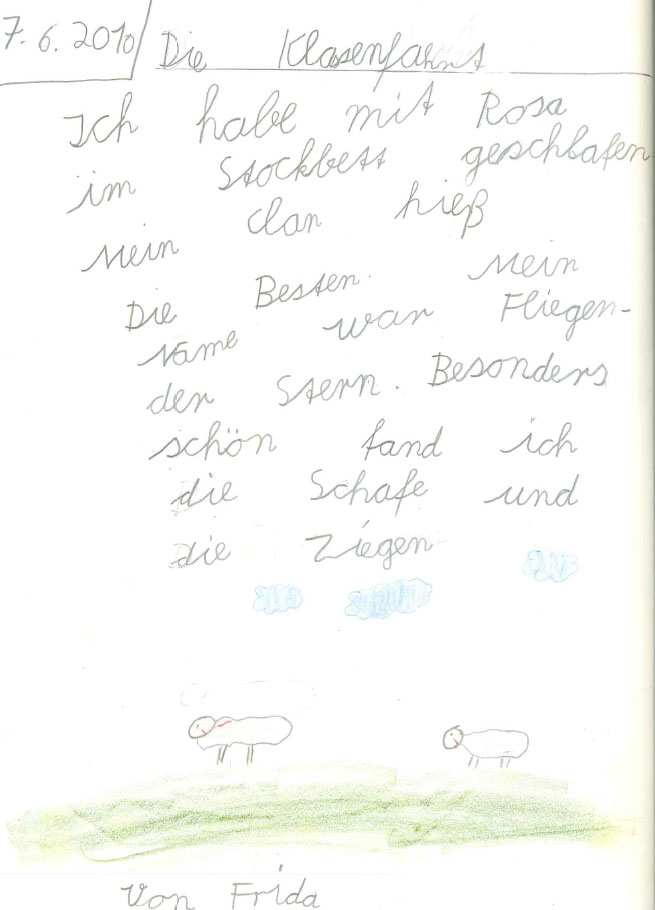 7.6.2010 Die Klasenfahrt
Ich habe mit Rosa
im Stockbett geschlafen.
Mein Clan hieß
Die Besten. Mein
Name war Fliegen-
der Stern. Besonders
schön fand ich
die Schafe und
die Ziegen
Von Frida